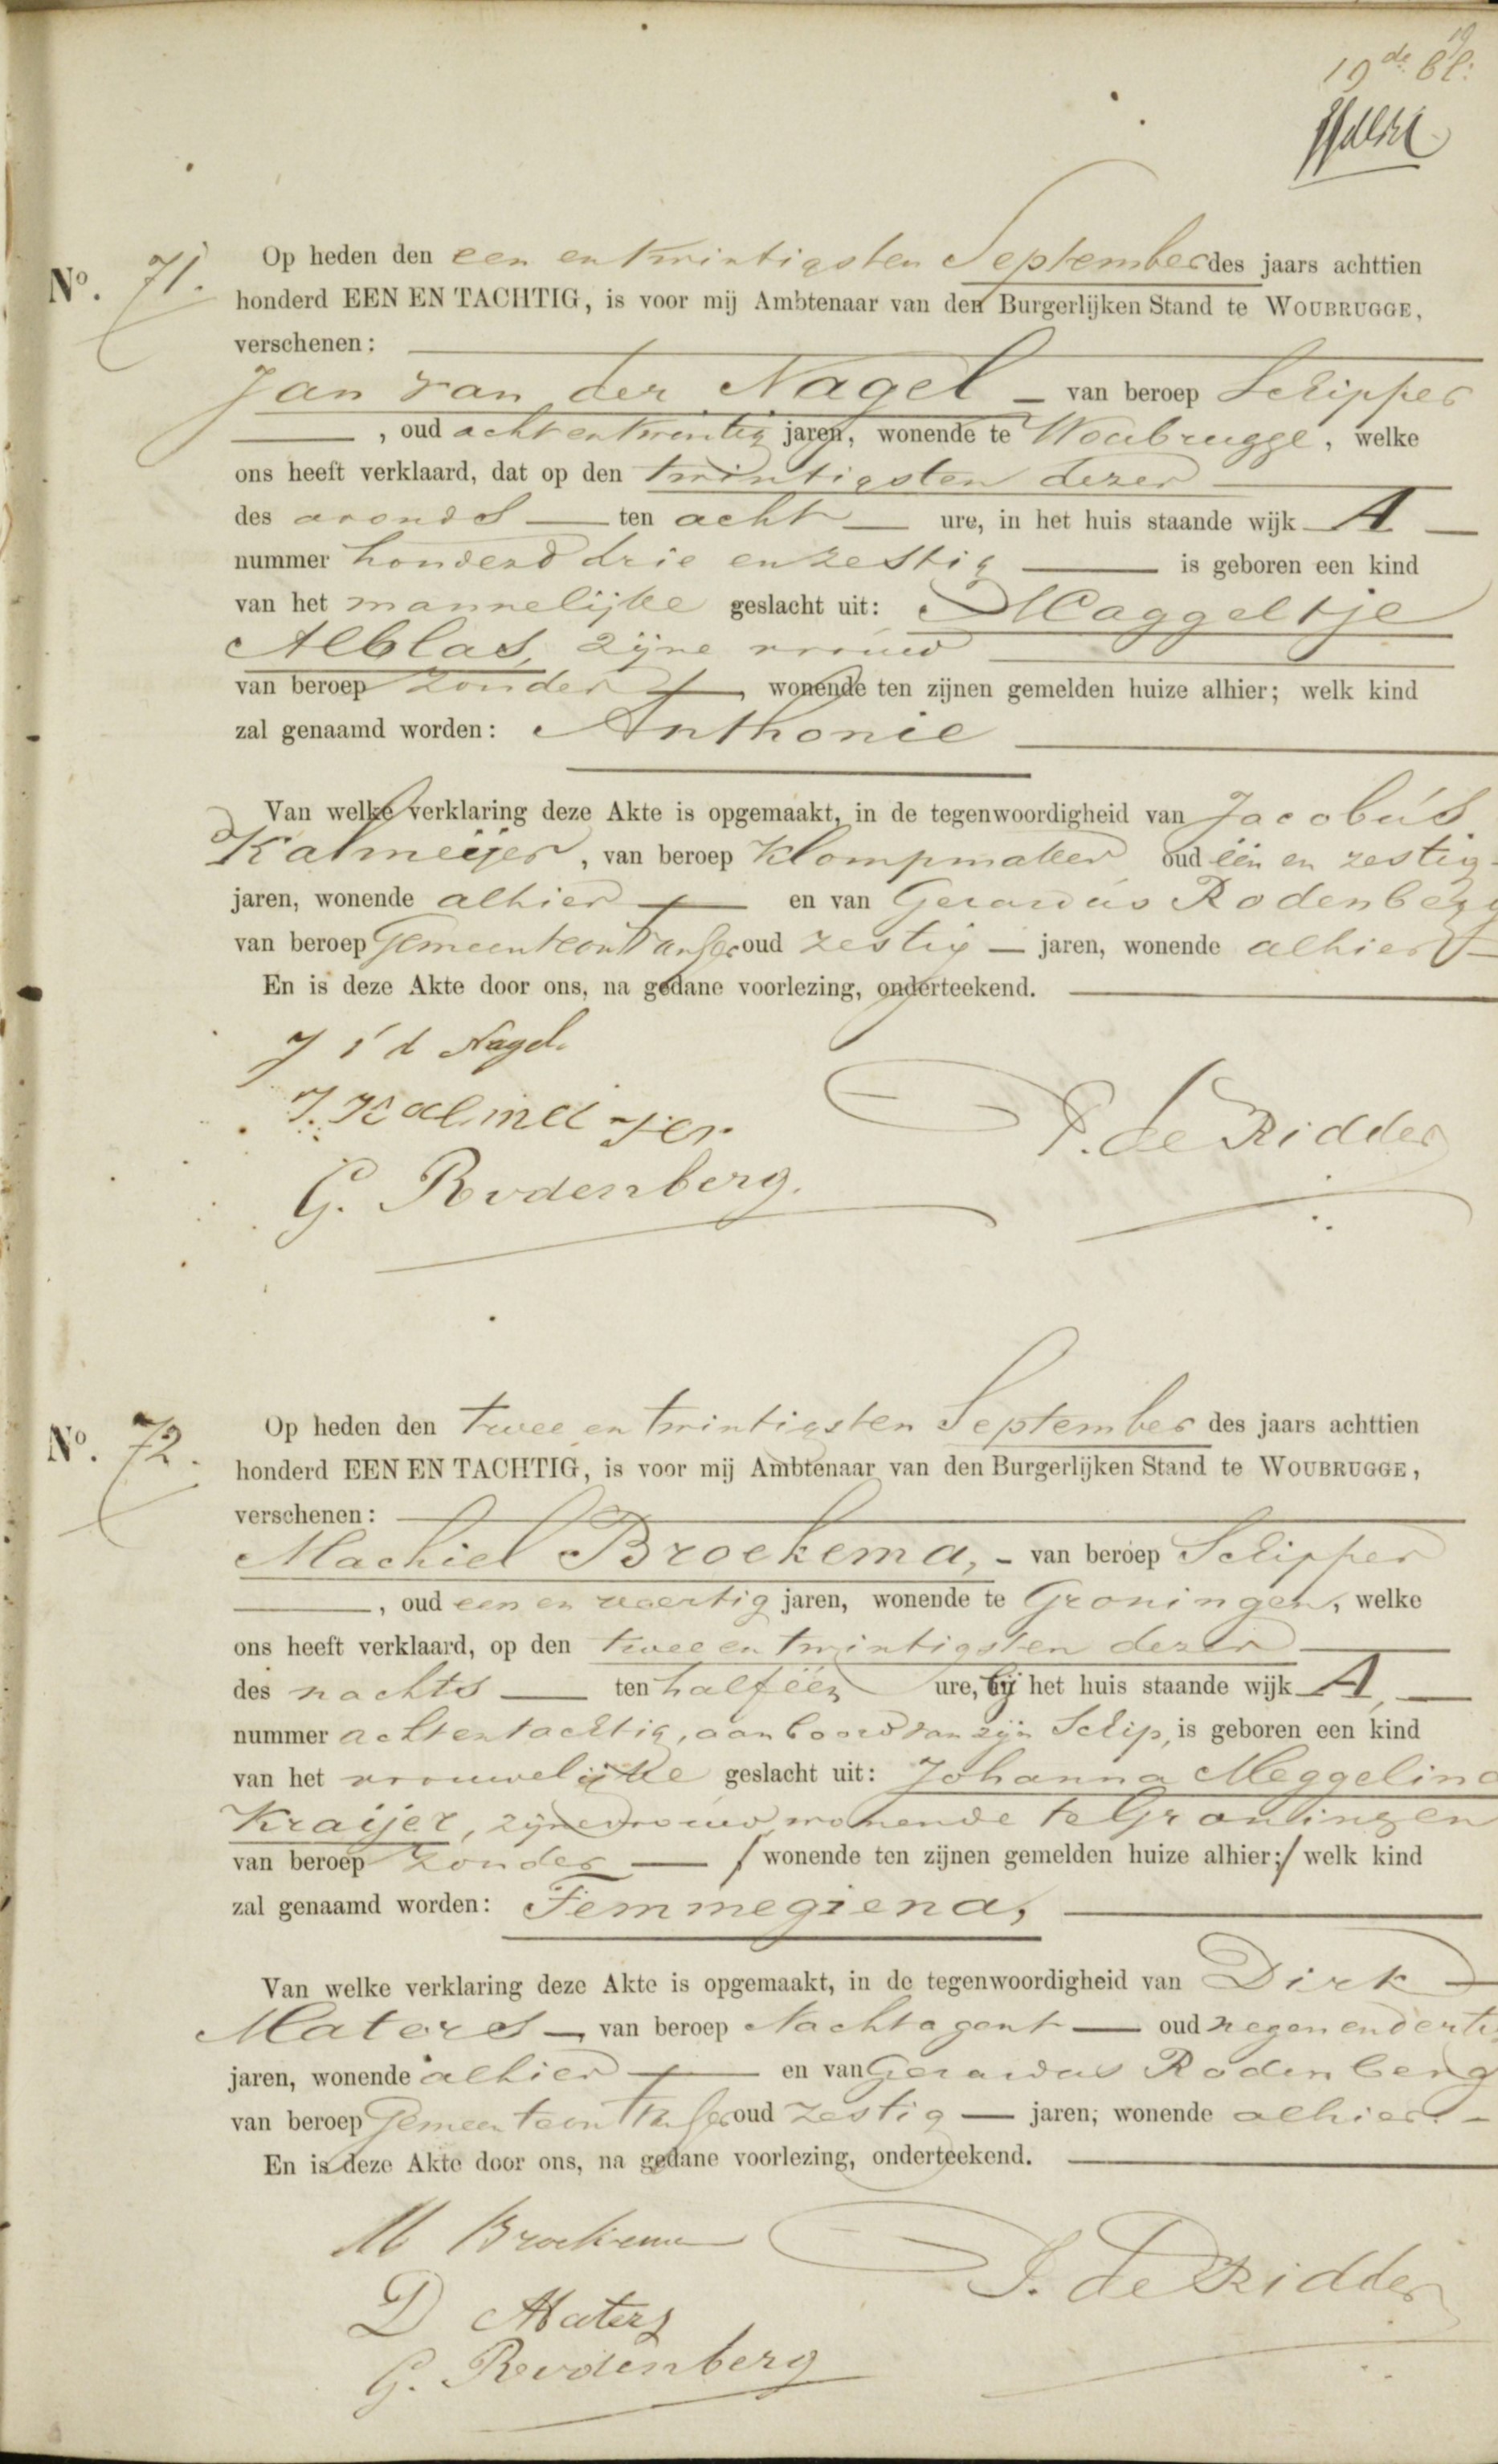 19de bl.
No. 71. Op heden den een en twintigsten September des jaars achttien
honderd EEN EN TACHTIG, is voor mij Ambtenaar van den Burgerlijken Stand te WOUBRUGGE,
verschenen:
Jan van der Nagel – van beroep Schipper
, oud acht en twintig jaren, wonende te Woubrugge, welke
ons heeft verklaard, dat op den twintigsten dezer
des avonds ten acht ure, in het huis staande wijk A
nummer honderd drie en zestig is geboren een kind
van het mannelijke geslacht uit: Maggeltje
Alblas, zijne vrouw
van beroep zonder, wonende ten zijnen gemelden huize alhier; welk kind
zal genaamd worden: Anthonie
Van welke verklaring deze Akte is opgemaakt, in de tegenwoordigheid van Jacobus
Kalmeijer, van beroep Klompmaker oud één en zestig
jaren, wonende alhier en van Gerardus Rodenberg
van beroep Gemeenteontvanger oud zestig – jaren, wonende alhier
En is deze Akte door ons, na gedane voorlezing, onderteekend.
J v d Nagel.
J. Kalmeijer
P. de Ridder
G. Rodenberg.
No. 72. Op heden den twee en twintigsten September des jaars achttien
honderd EEN EN TACHTIG, is voor mij Ambtenaar van den Burgerlijken Stand te WOUBRUGGE,
verschenen:
Machiel Broekema, – van beroep Schipper
, oud een en veertig jaren, wonende te Groningen, welke
ons heeft verklaard, op den twee en twintigsten dezer
des nachts ten half één ure, bij het huis staande wijk A,
nummer acht en tachtig, aan boord van zijn Schip, is geboren een kind
van het vrouwelijke geslacht uit: Johanna Meggelina
Kraijer, zijne vrouw, wonende te Groningen
van beroep zonder / wonende ten zijnen gemelden huize alhier;/ welk kind
zal genaamd worden: Femmegiena,
Van welke verklaring deze Akte is opgemaakt, in de tegenwoordigheid van Dirk
Maters, van beroep Nachtagent oud negen en dertig
jaren, wonende alhier en van Gerardus Rodenberg
van beroep Gemeenteontvanger oud zestig jaren, wonende alhier. –
En is deze Akte door ons, na gedane voorlezing, onderteekend.
M Broekema
P. de Ridder
D Maters
G. Rodenberg